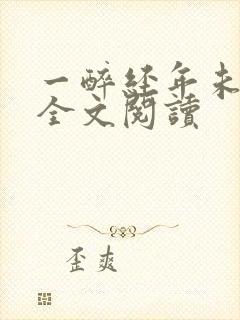 一醉经年未
全文閱讀
歪爽